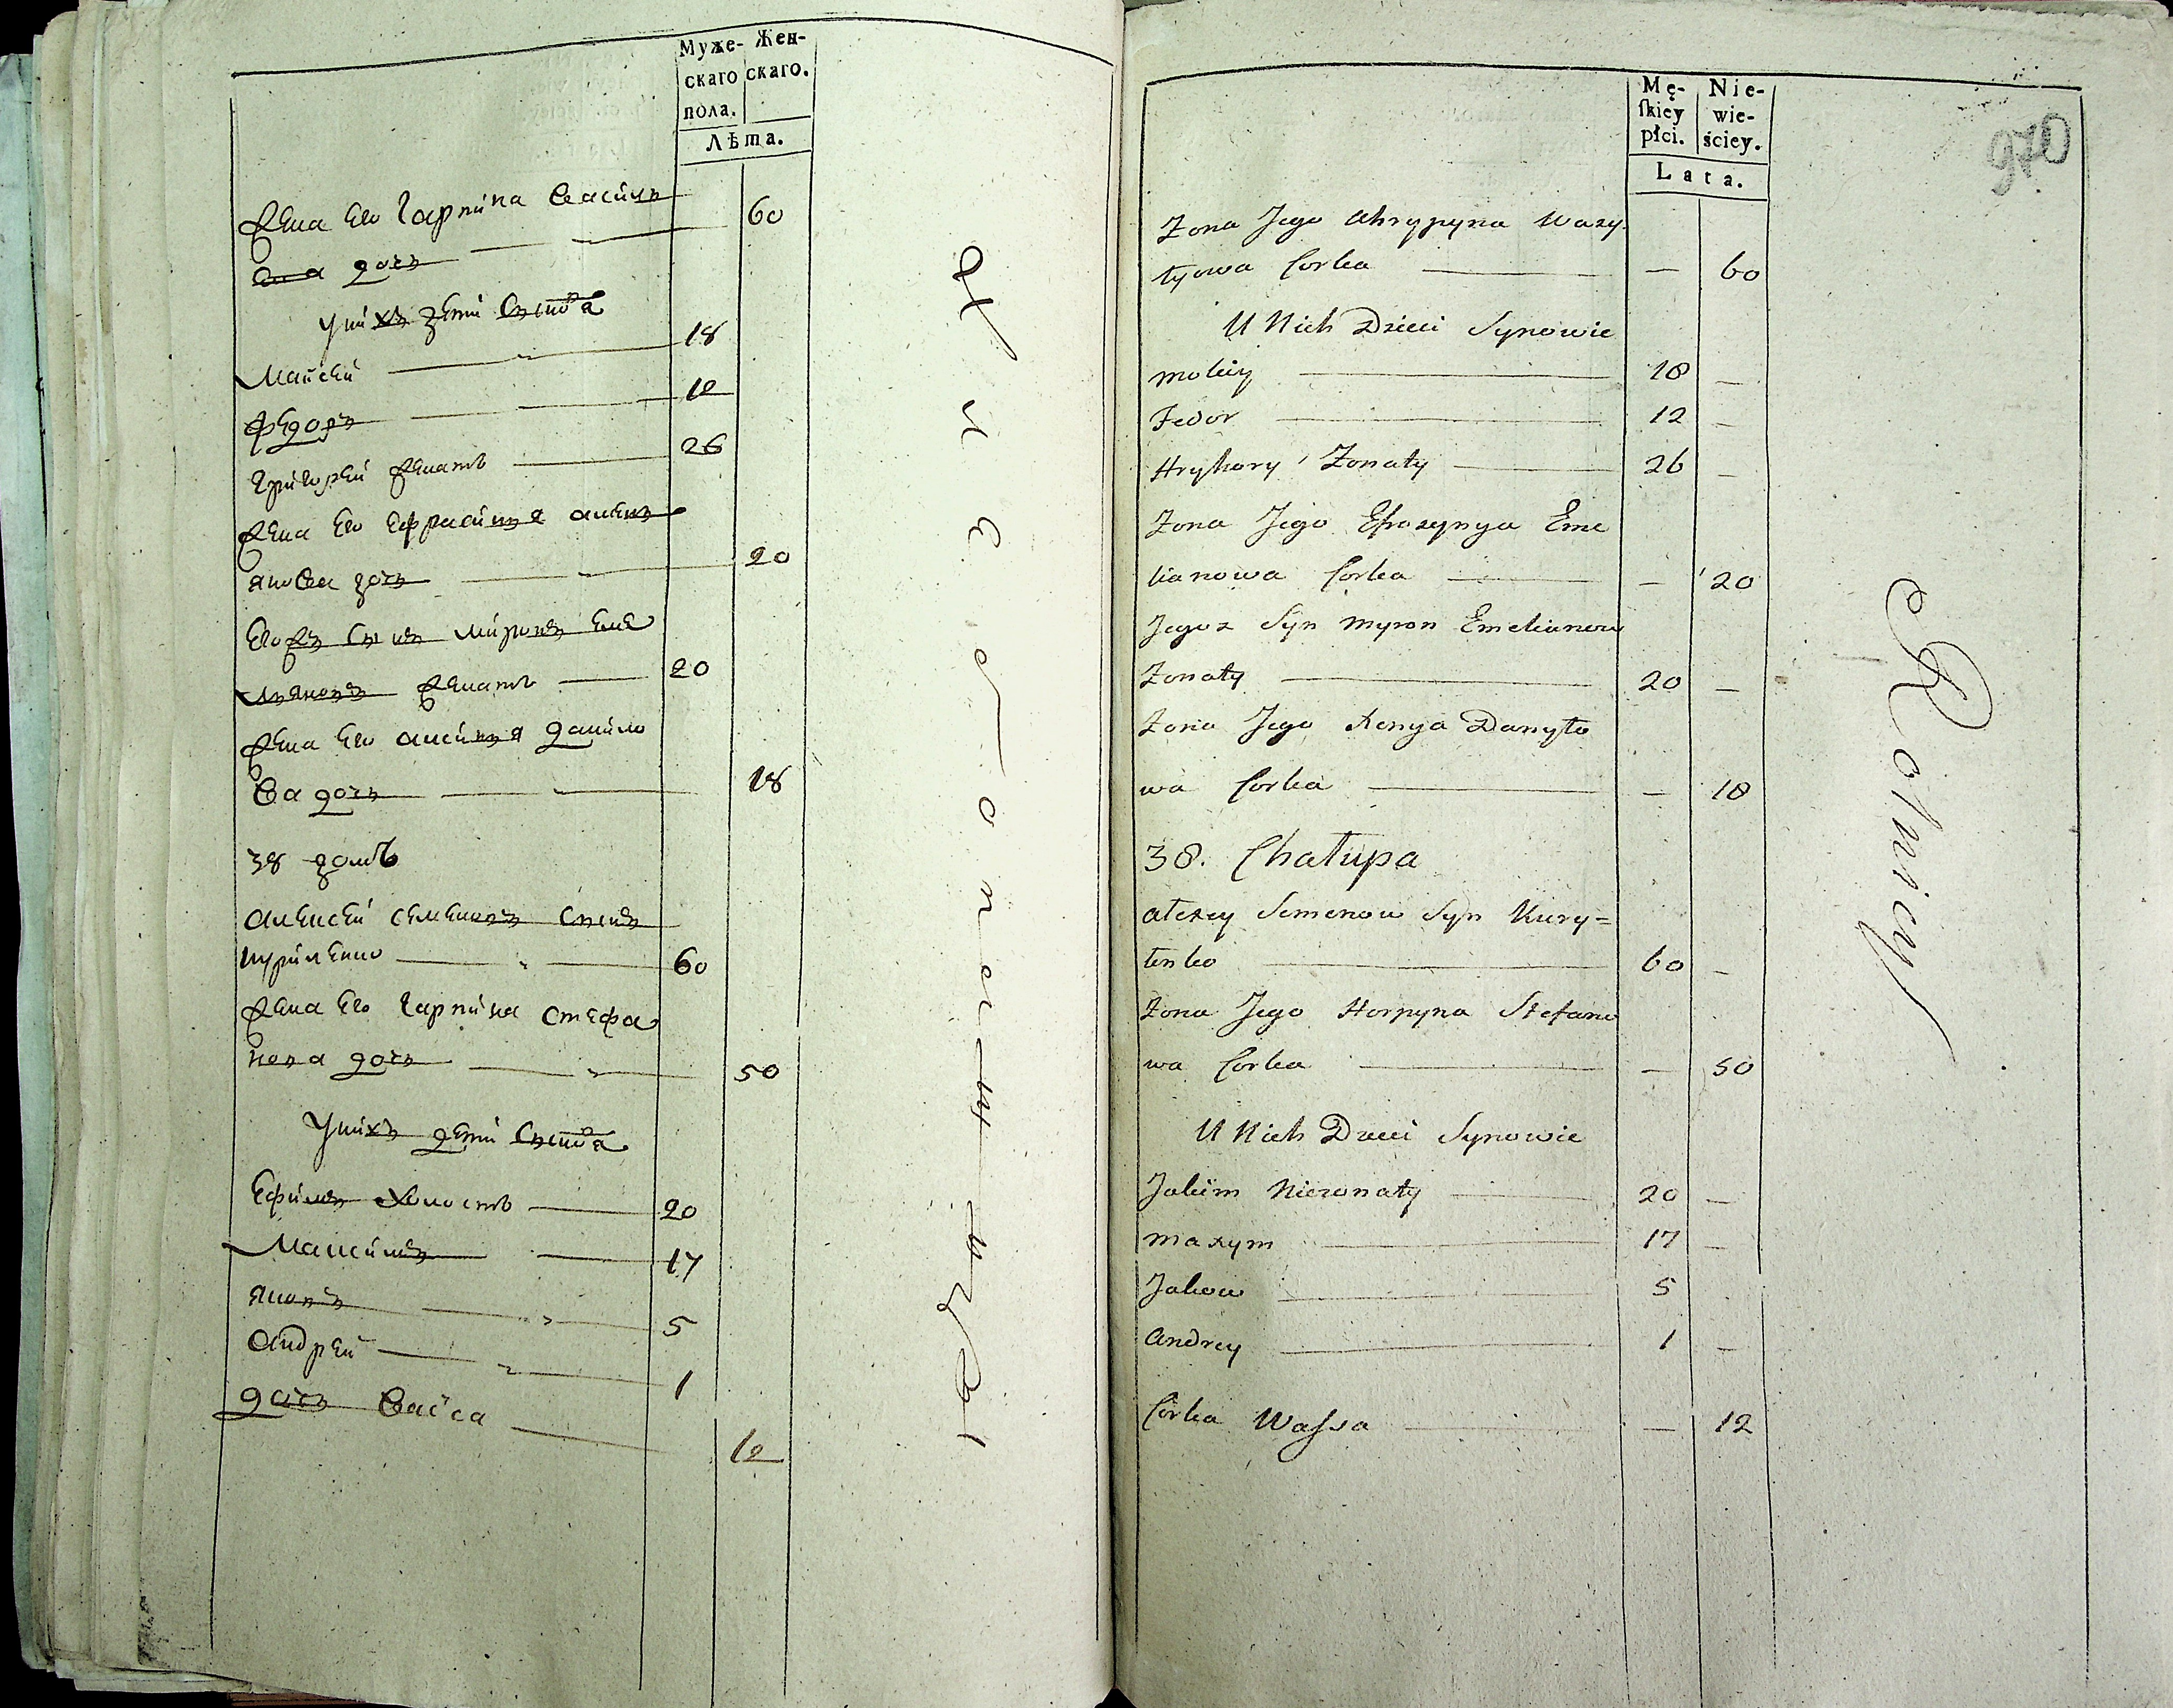 Муже- Жен-
скаго скаго.
пола.
Лѣта.
Жена Его Гарпина Васил
ева дочь 60
У них дети Сынов̾я
Мойсей 18
Федоръ 12
Григорей женатъ 26
Жена Его Ефросиня Омел
яновна дочь 20
Егожъ Сынъ Миронъ Еме
льяновъ женатъ 20
Жена Его Аксиня Данило
ва дочь 18
38 домъ
Алексей Семеновъ Сынъ
Куриленко 60
Жена Его Гарпина Стефа
нова дочь 50
У нихъ дети Сынов̾я
Ефимъ Холостъ 20
Максимъ 17
Яковъ 5
Андрей 1
дочь Васса 12
Mę- Nie-
ſkiey wie-
płci. ściey.
Lata.
970
Zona Jego Ahrypyna Wasy-
lyowa Corka — 60
U Nich Dzieci Synowie
Mokiy 18 —
Fedor 12 —
Hryhory Zonaty 26 —
Zona Jego Efrosynya Eme
lianowa Corka — 20
Jegoz Syn Myron Emelianow
Zonaty 20 —
Zona Jego Xenya Danyło
wa Corka — 18
38. Chałupa
Alexey Semenow Syn Kury=
lenko 60 —
Zona Jego Horpyna Stefano
wa Corka — 50
U Nich Dzieci Synowie
Jakim Niezonaty 20 —
Maxym 17 —
Jakow 5
Andrey 1 —
Córka Waſsa — 12
Rolnicy